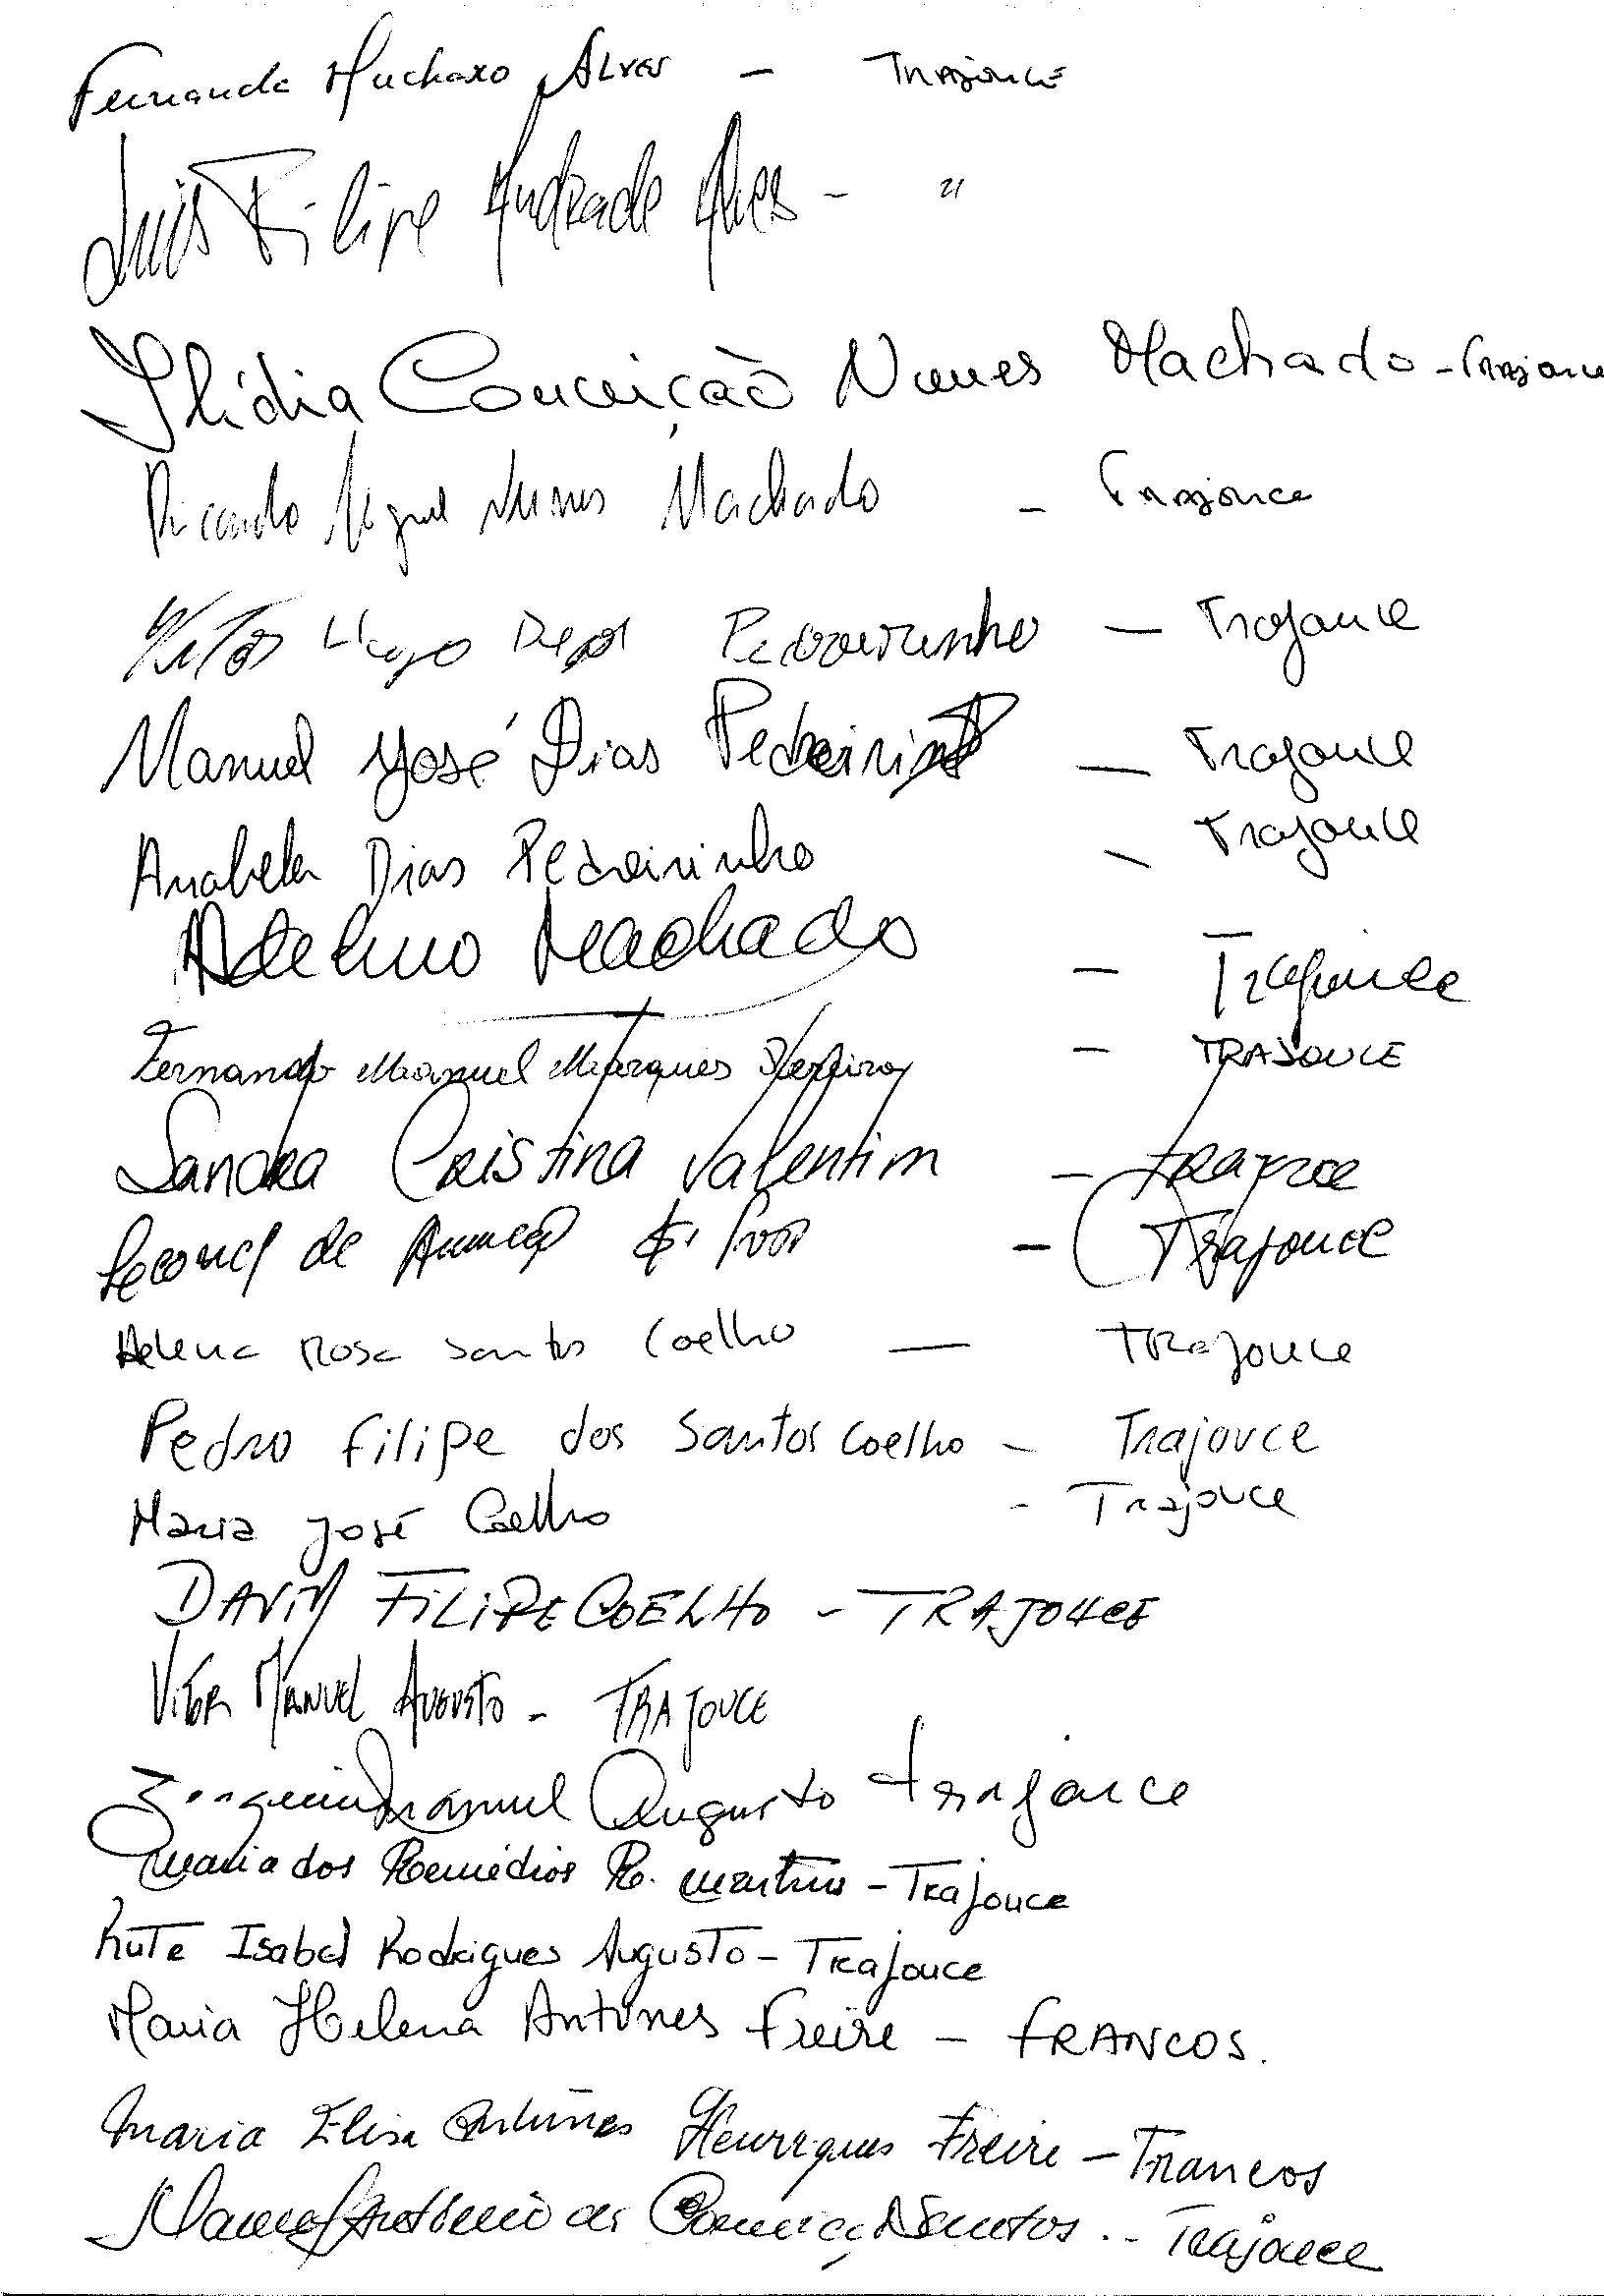 Fernanda Muchaxo Alves - Trajouce
Luis Filipe Andrade Alves - "
Ilídia Conceição Nunes Machado - Trajouce
Ricardo Miguel Nunes Machado - Trajouce
Vitor Hugo Dias Pedreirinho - Trajouce
Manuel José Dias Pedreirinho - Trajouce
Anabela Dias Pedreirinho - Trajouce
Adelino Machado - Trajouce
Fernando Manuel Marques - TRAJOUCE
Sandra Cristina Valentim - Trajouce
de - Trajouce
Helena Rosa Santos Coelho - Trajouce
Pedro Filipe dos Santos Coelho - Trajouce
Maria José Coelho - Trajouce
DAVID FILIPE COELHO - TRAJOUCE
VITOR MANUEL AUGUSTO - TRAJOUCE
Joaquim Manuel Augusto Trajouce
Maria dos Remédios R. Martins - Trajouce
Rute Isabel Rodrigues Augusto - Trajouce
Maria Helena Antunes Freire - FRANCOS.
Maria Elisa Antunes Henriques Freire - Francos
Manuel António da Conceição Santos - Trajouce